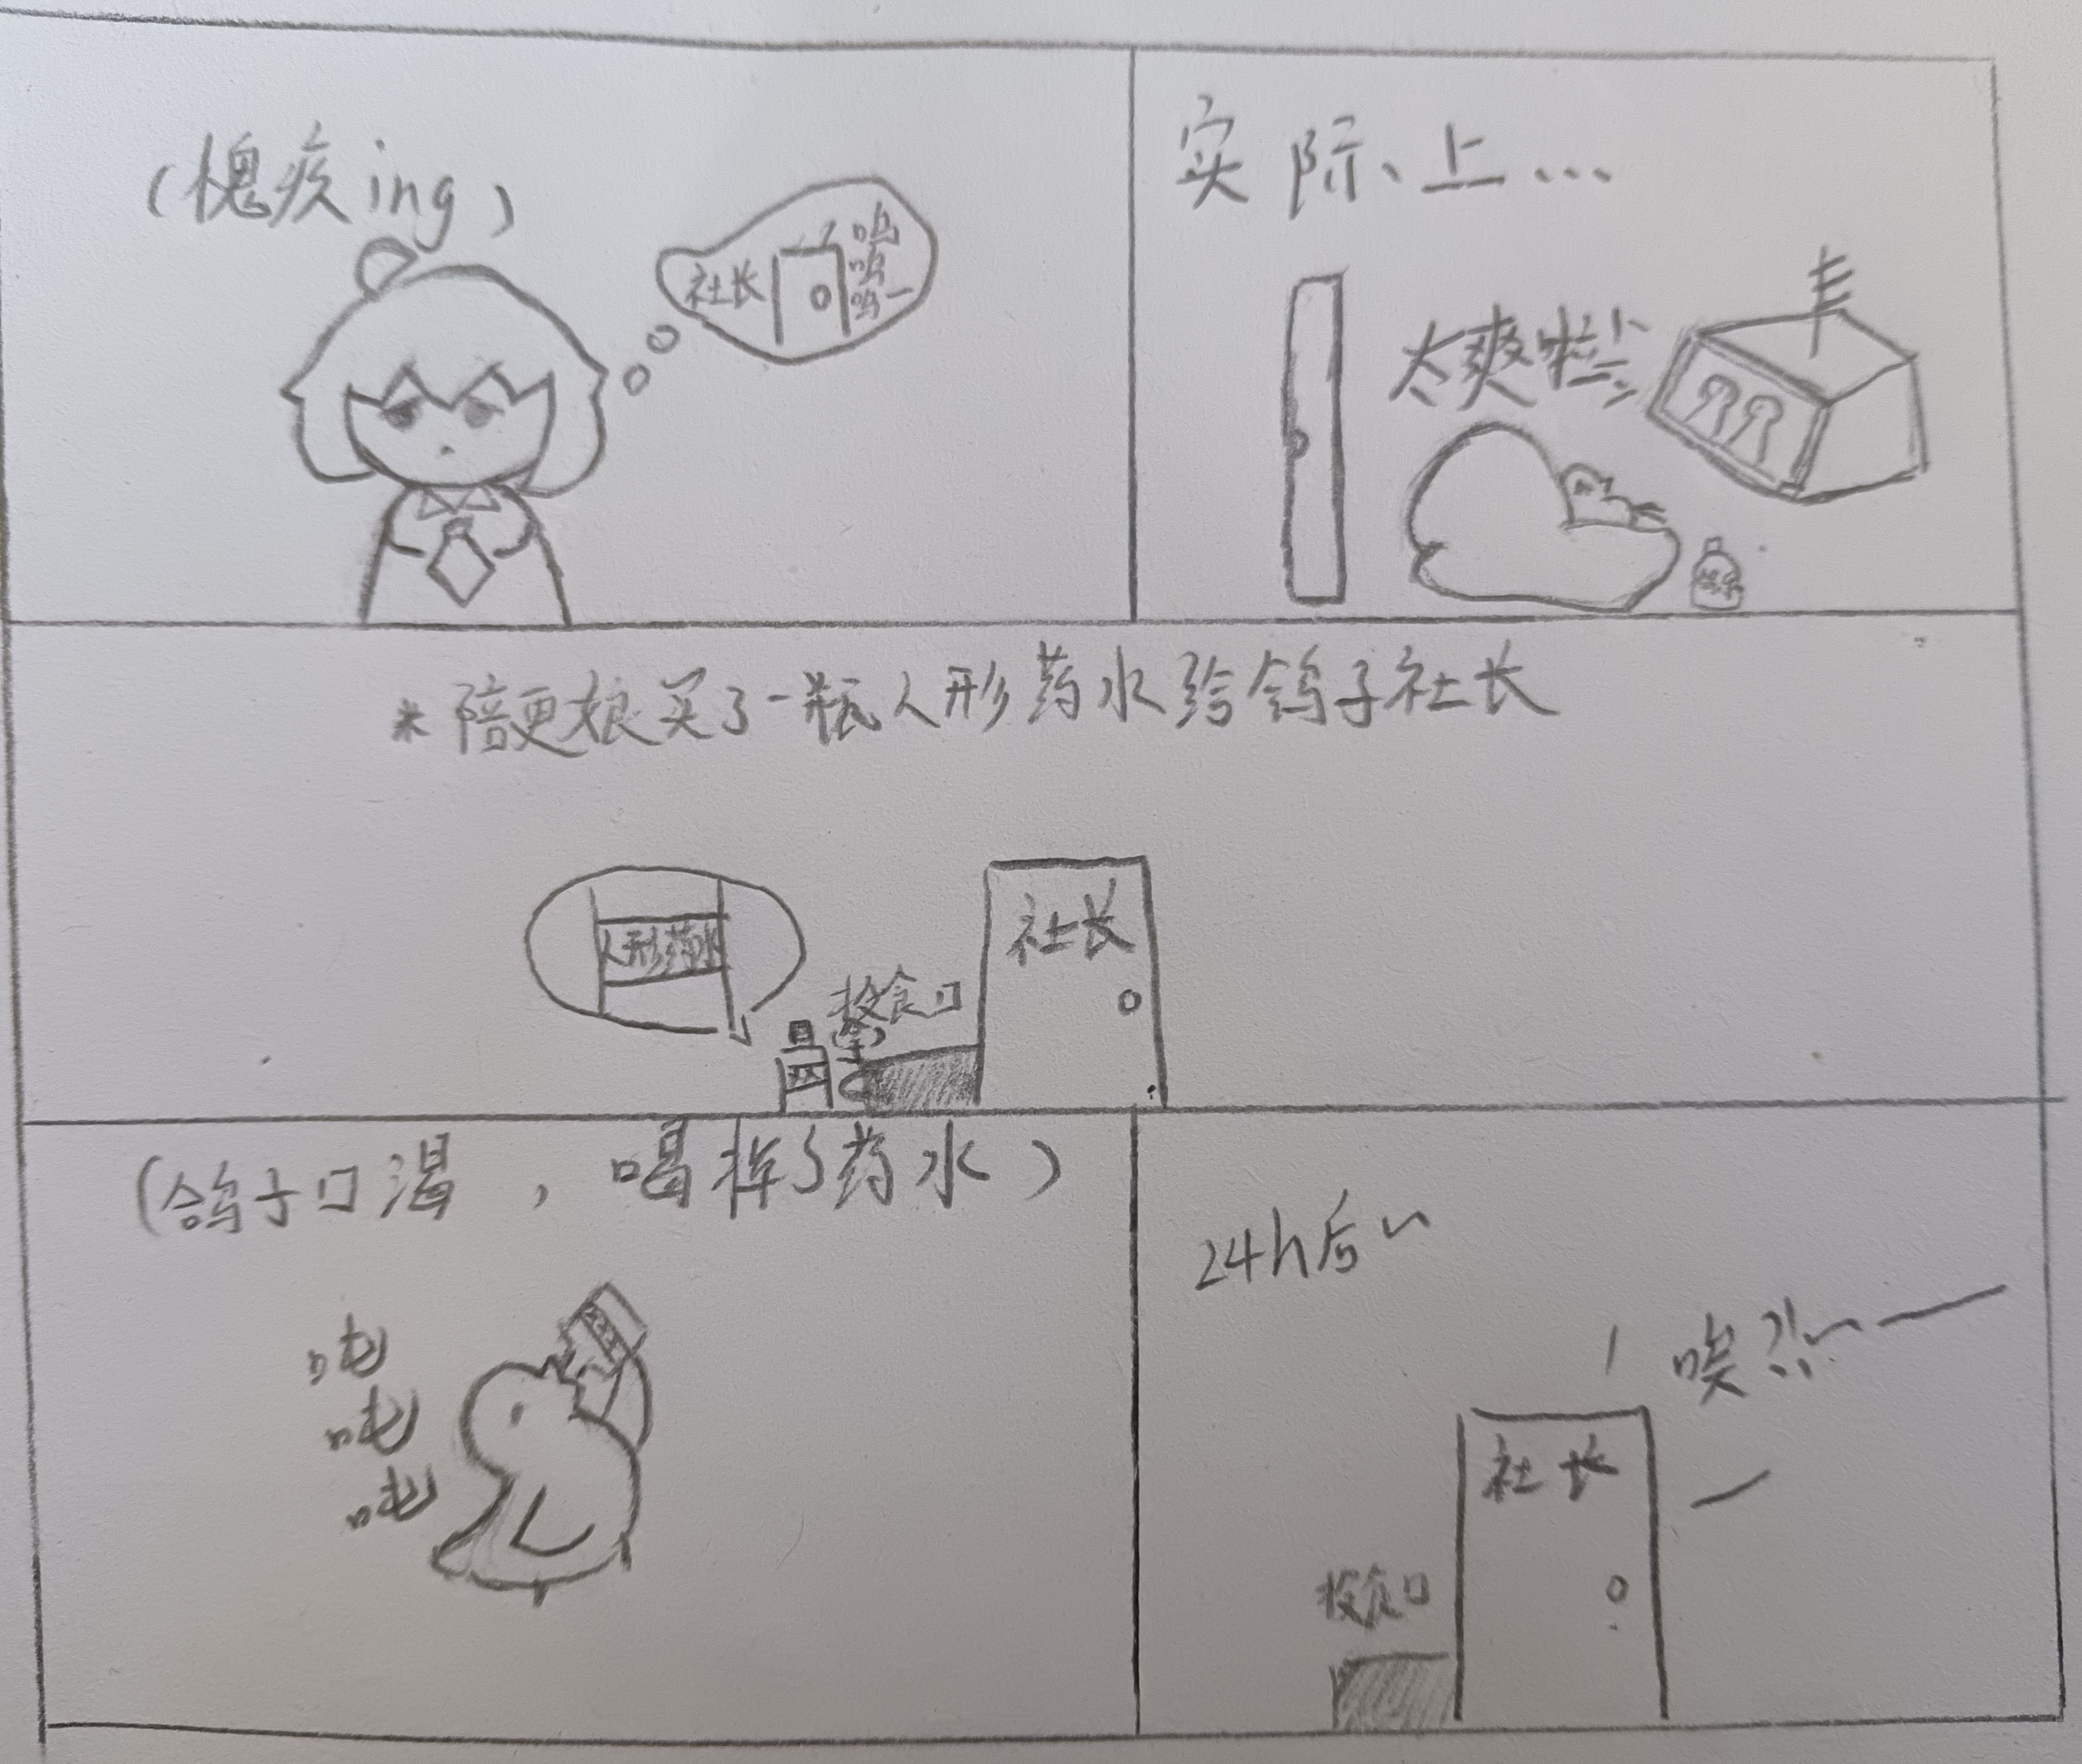 (愧疚ing)
社长
呜
呜
呜一
实际上...
太爽啦
*陪更娘买了一瓶人形药水给鸽子社长
人形药水
投食口
社长
(鸽子口渴，喝掉了药水)
吨
吨
吨
24h后~
唉?!~
社长
投食口